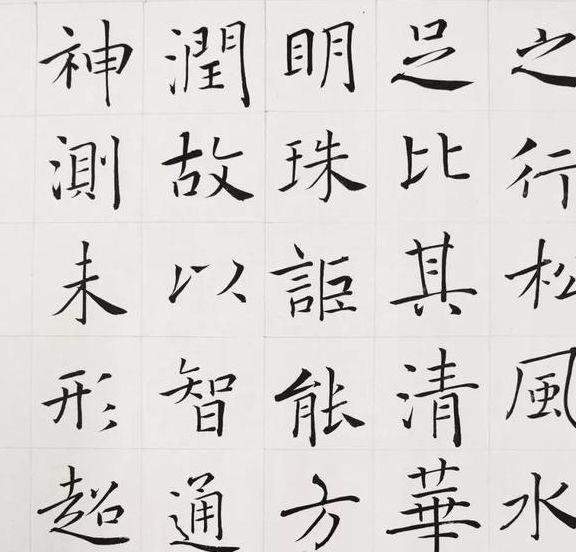 之行松風水
足比其清華
明珠詎能方
潤故以智通
神測未形超